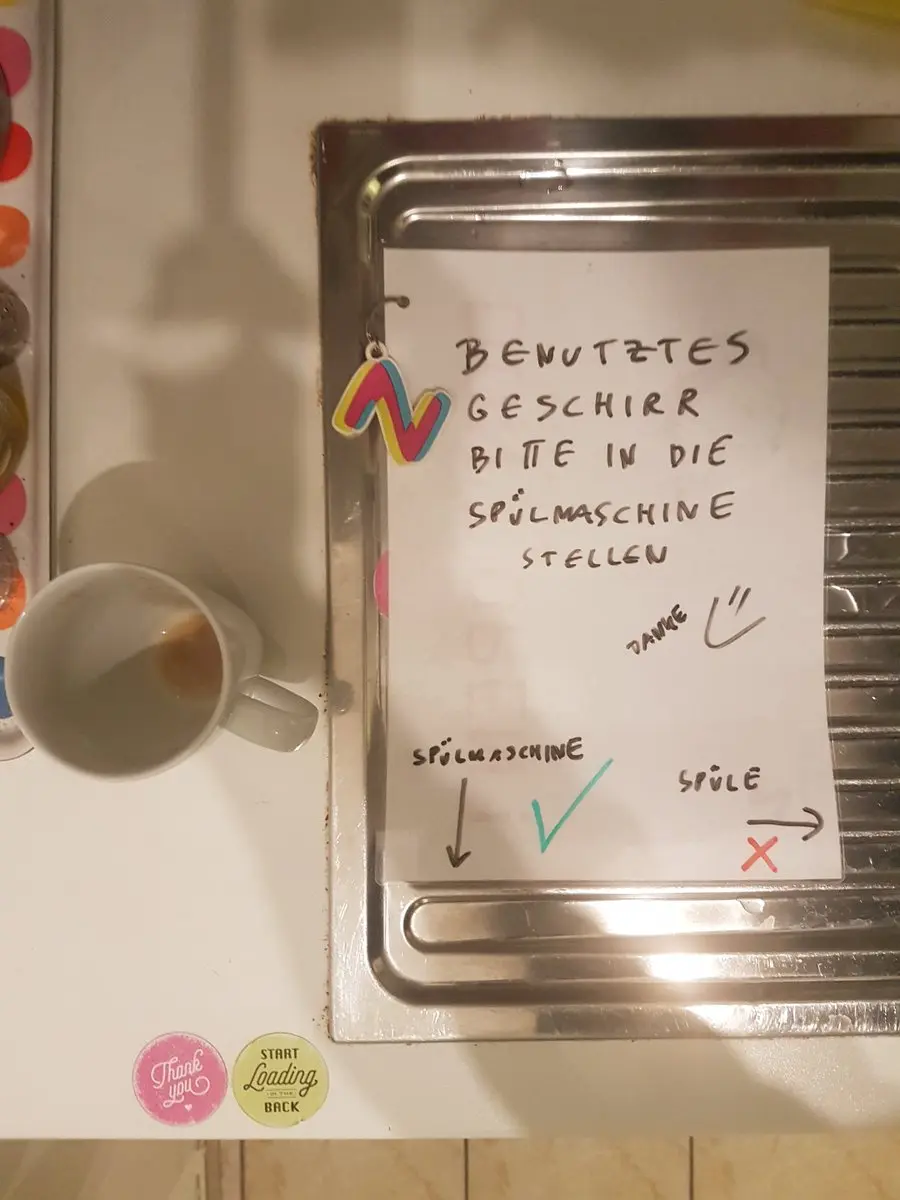 BENUTZTES
GESCHIRR
BITTE IN DIE
SPÜLMASCHINE
STELLEN
DANKE
SPÜLMASCHINE
SPÜLE
Thank
you
START
Loading
IN THE
BACK